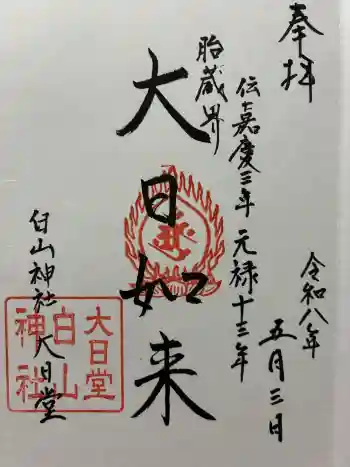 奉拝
令和八年
五月三日
伝嘉慶三年 元禄十三年
胎蔵界
大日如来
白山神社 大日堂
大日堂
白山
神社